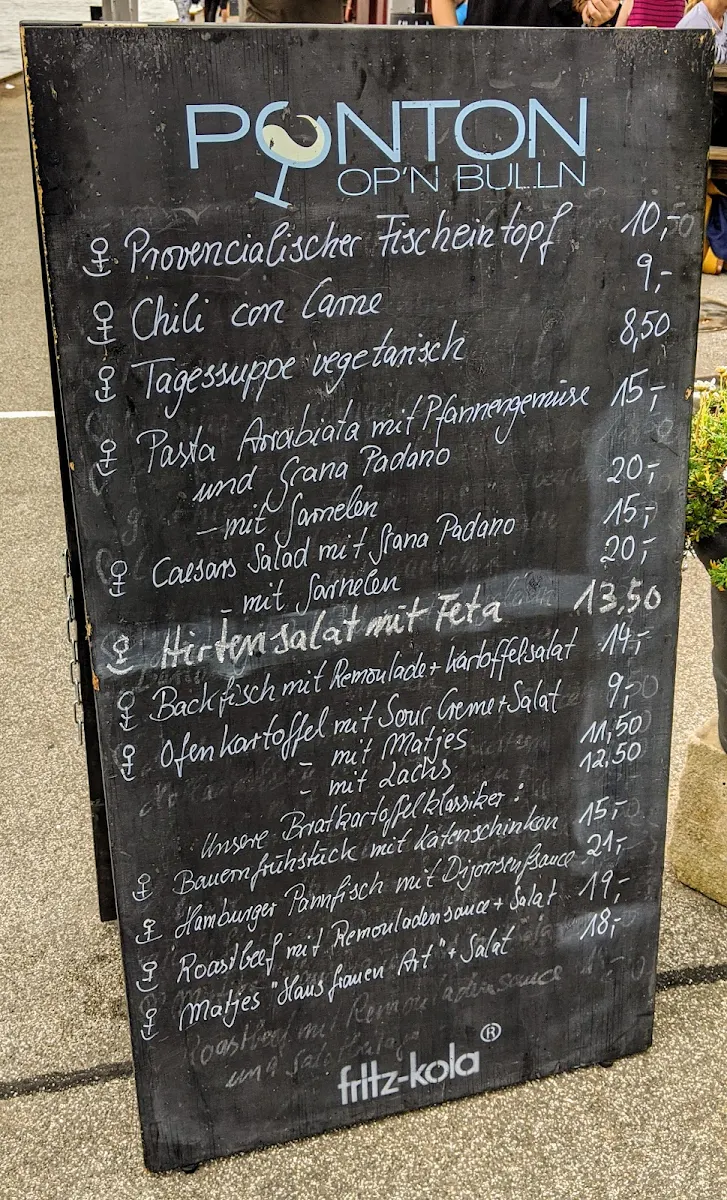 PONTON
OP'N BULLN
Provencialischer Fischeintopf 10,-
Chili con Carne 9,-
Tagessuppe vegetarisch 8,50
Pasta Arrabiata mit Pfannengemüse 15,-
und Grana Padano
- mit Garnelen 20,-
Caesars Salad mit Grana Padano 15,-
- mit Garnelen 20,-
Hirtensalat mit Feta 13,50
Backfisch mit Remoulade + Kartoffelsalat 14,-
Ofenkartoffel mit Sour Creme + Salat 9,-
- mit Matjes 11,50
- mit Lachs 12,50
Unsere Bratkartoffelklassiker:
Bauernfrühstück mit Katenschinken 15,-
Hamburger Pannfisch mit Dijonsenfsauce 21,-
Roastbeef mit Remouladensauce + Salat 19,-
Matjes "Hausfrauen Art" + Salat 18,-
Roastbeef mit Remouladensauce
und Salatbeilage
fritz-kola®